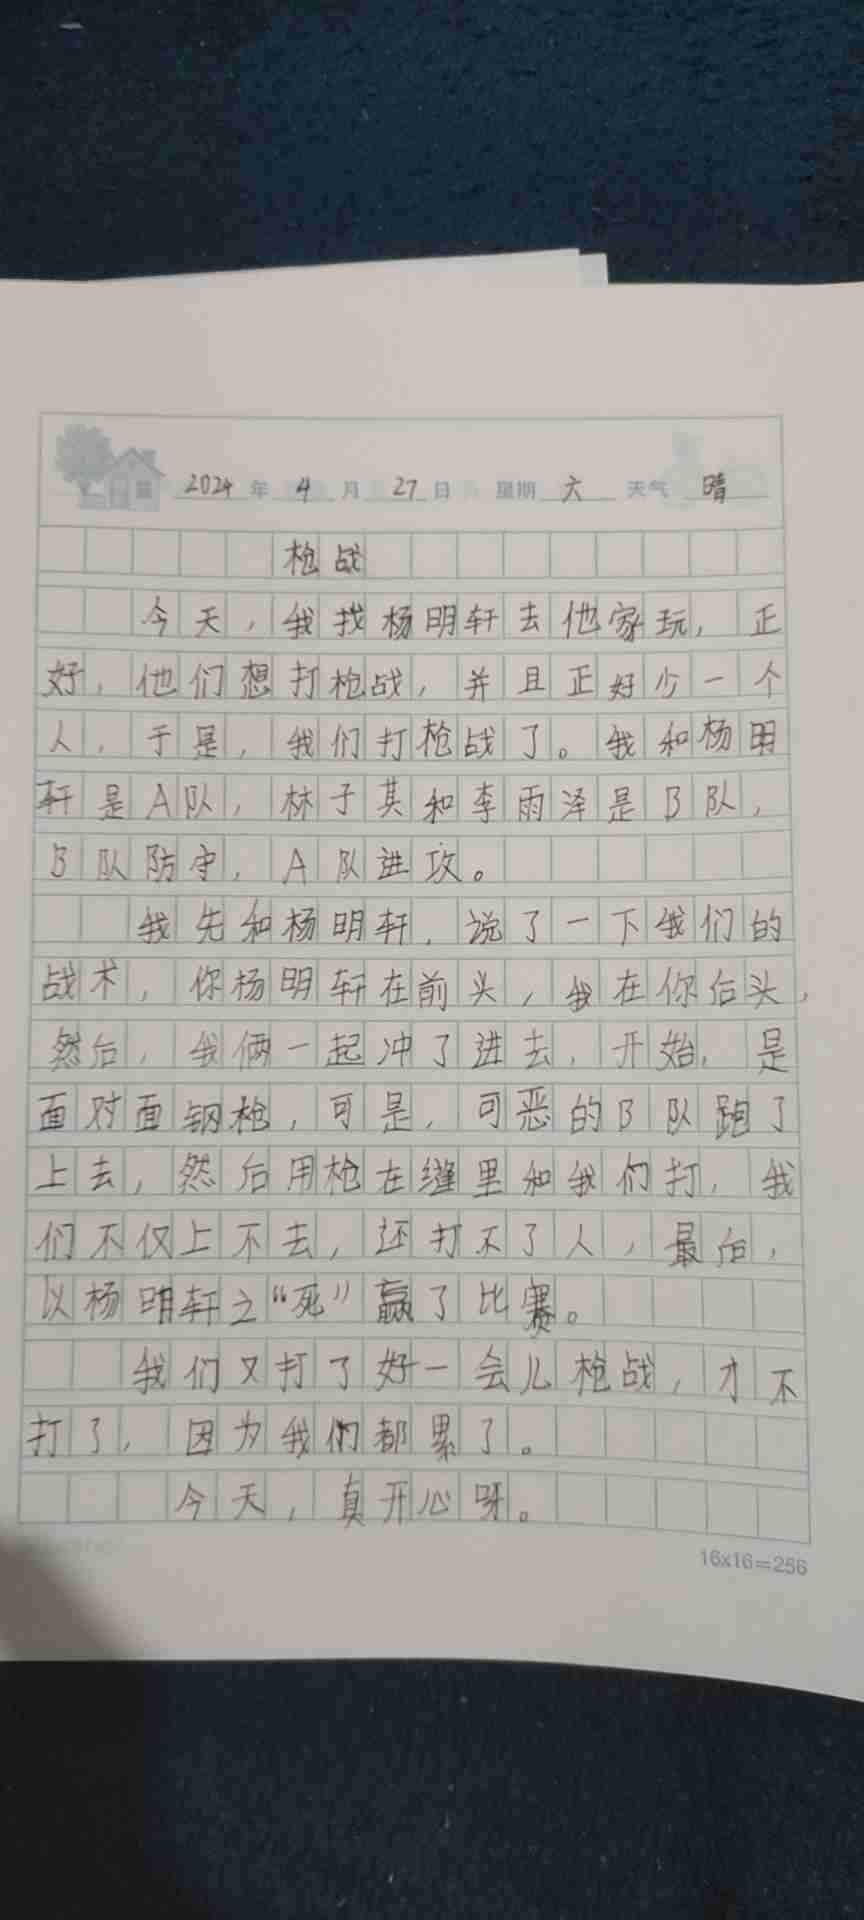 2024 年 4 月 27 日 星期 六 天气 晴
枪战
今天，我找杨明轩去他家玩，正
好，他们想打枪战，并且正好少一个
人，于是，我们打枪战了。我和杨明
轩是A队，林子其和李雨泽是B队，
B队防守，A队进攻。
我先和杨明轩，说了一下我们的
战术，你杨明轩在前头，我在你后头，
然后，我俩一起冲了进去，开始，是
面对面钢枪，可是，可恶的B队跑了
上去，然后用枪在缝里和我们打，我
们不仅上不去，还打不了人，最后，
以杨明轩之“死”赢了比赛。
我们又打了好一会儿枪战，才不
打了，因为我们都累了。
今天，真开心呀。
16x16=256